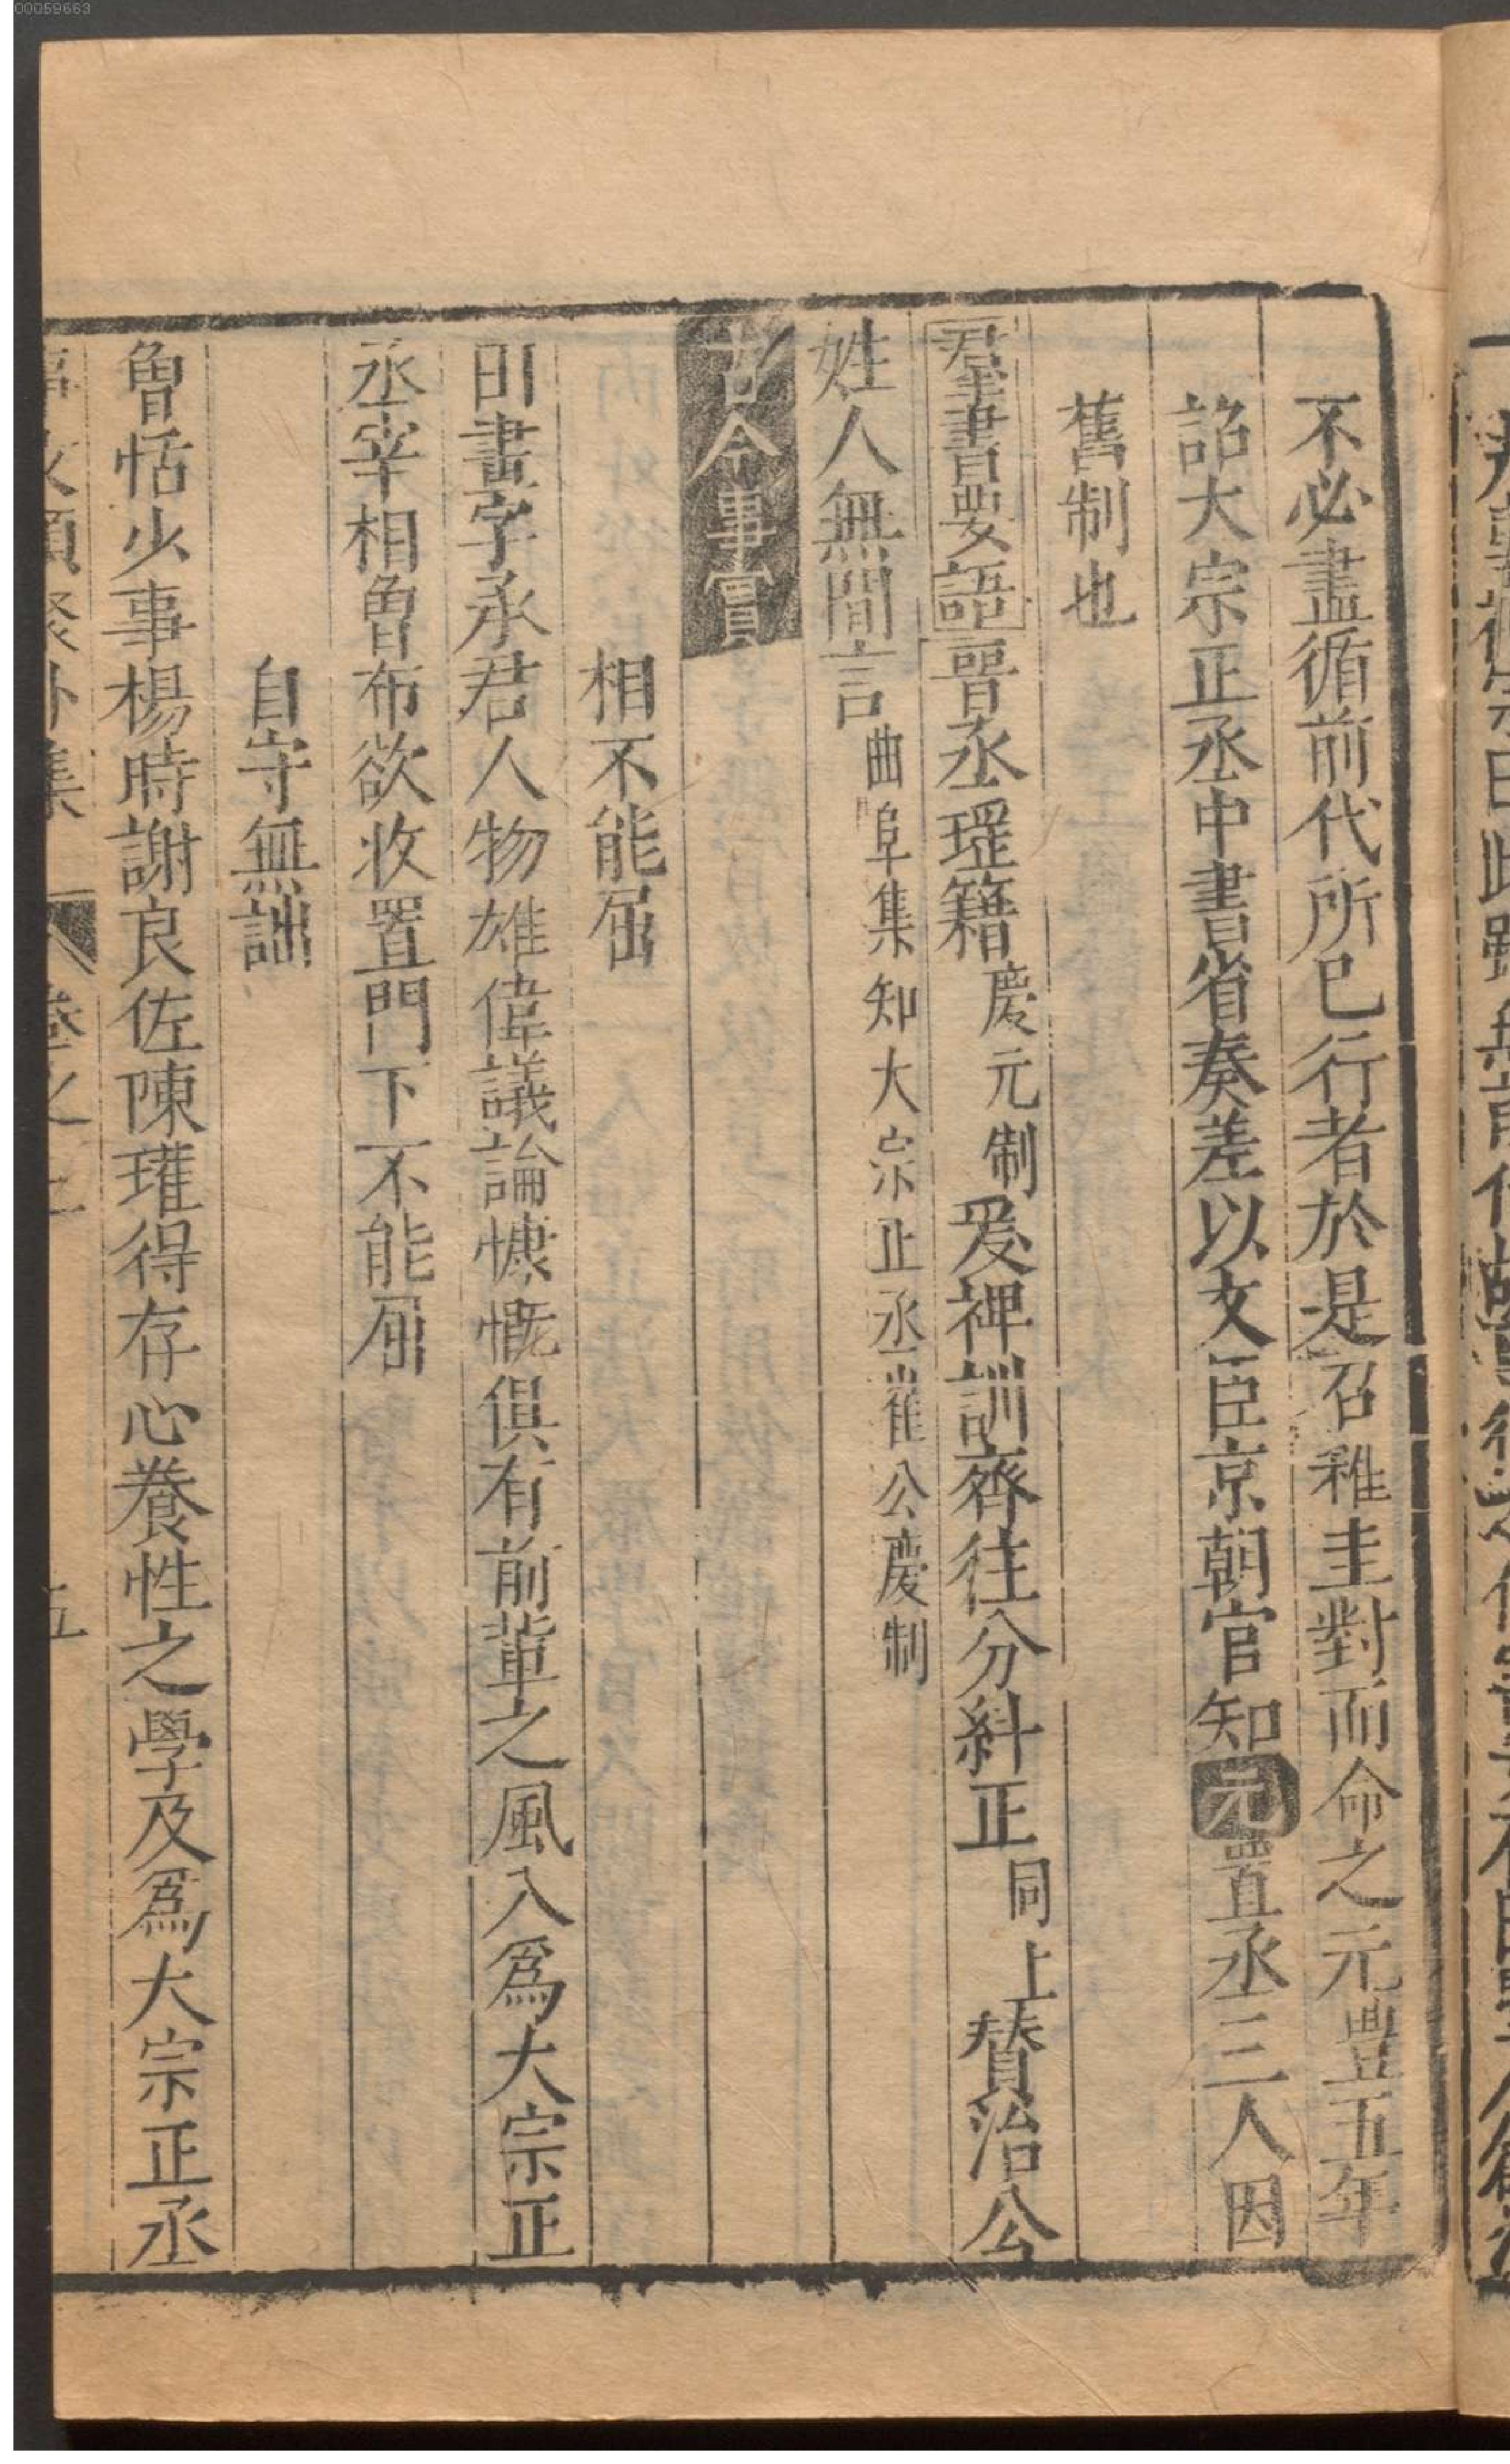 00059663
不必盡循前代所已行者於是召稚圭對而命之元豊五年
詔大宗正丞中書省奏差以文臣京朝官知元置丞三人因
舊制也
羣書要語晋丞瑶籍慶元制爰裨訓齊往分糾正同上賛治公
姓人無間言曲阜集知大宗正丞崔公慶制
古今事實
相不能屈
田晝字承君人物雄偉議論慷慨俱有前軰之風入爲大宗正
丞宰相魯布欲收置門下不能屈
自守無詘
魯恬少事楊時謝良佐陳瓘得存心養性之學及爲大宗正丞
事文類聚外集 卷之二 五